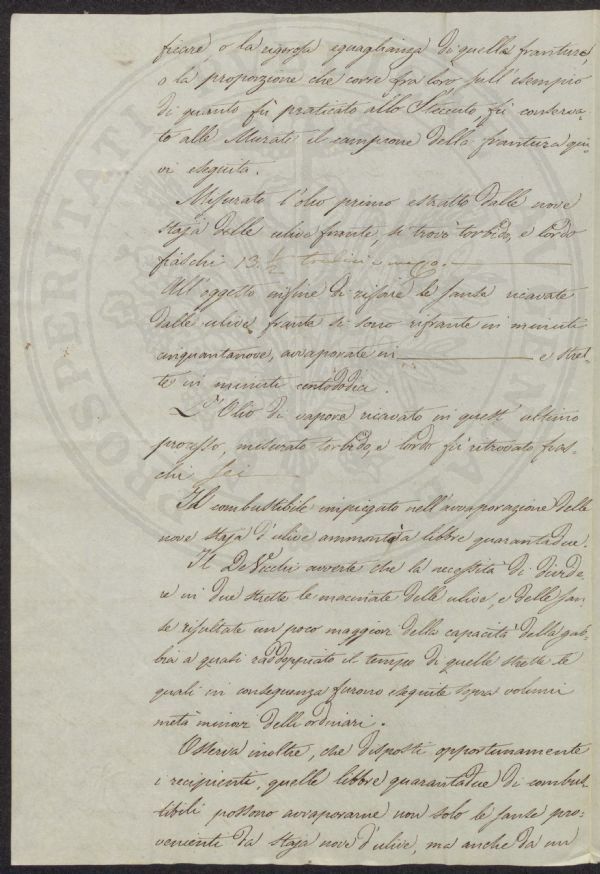 ficare o la rigorosa eguaglianza di quelle franture,
o la proporzione che corre fra loro sull'esempio
di quanto fù praticato allo Steccuto fù conserva-
to alle Murate il campione della frantura qui-
vi eseguita.
Misurato l'olio primo estratto dalle nove
staja delle ulive frante, si trovò torbido, e lordo
fiaschi 13 1/2
All'oggetto infine di rifare le sanse ricavate
dalle ulive frante si sono rifrante in minuti
cinquantanove, avvaporate in e stret-
te in minuti centododici.
L'Olio di vapore ricavato in quest'ultimo
processo, misurato torbido, e lordo fù ritrovato fias-
chi sei
Il combustibile impiegato nell'avvaporazione delle
nove staja d'ulive ammontò a libbre quarantadue.
Il De Vecchi avverte che la necessità di divide-
re in due strette le macinate delle ulive, e delle san-
se risultate un poco maggiori della capacità della gab-
bia a quasi raddoppiato il tempo di quelle strette le
quali in conseguenza furono eseguite sopra volumi
metà minori delli ordinari.
Osserva inoltre, che disposti opportunamente
i recipienti, quelle libbre quarantadue di combus-
tibili possono avvaporarne non solo le sanse pro-
venienti da staja nove d'ulive, ma anche da un
PROSPERITATI